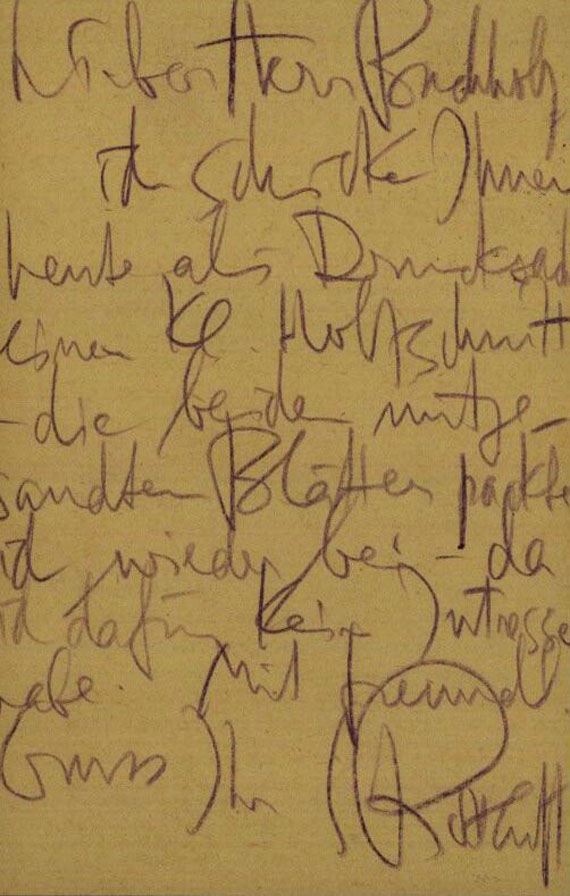 Lieber Herr Buchholz
ich schicke Ihnen
heute als Drucksach
einen kl. Holzschnitt
- die beiden mitge-
sandten Blätter packte
ich wieder bei - da
ich dafür kein Intresse
habe. Mit freundl
Gruss Ihr Rottluff